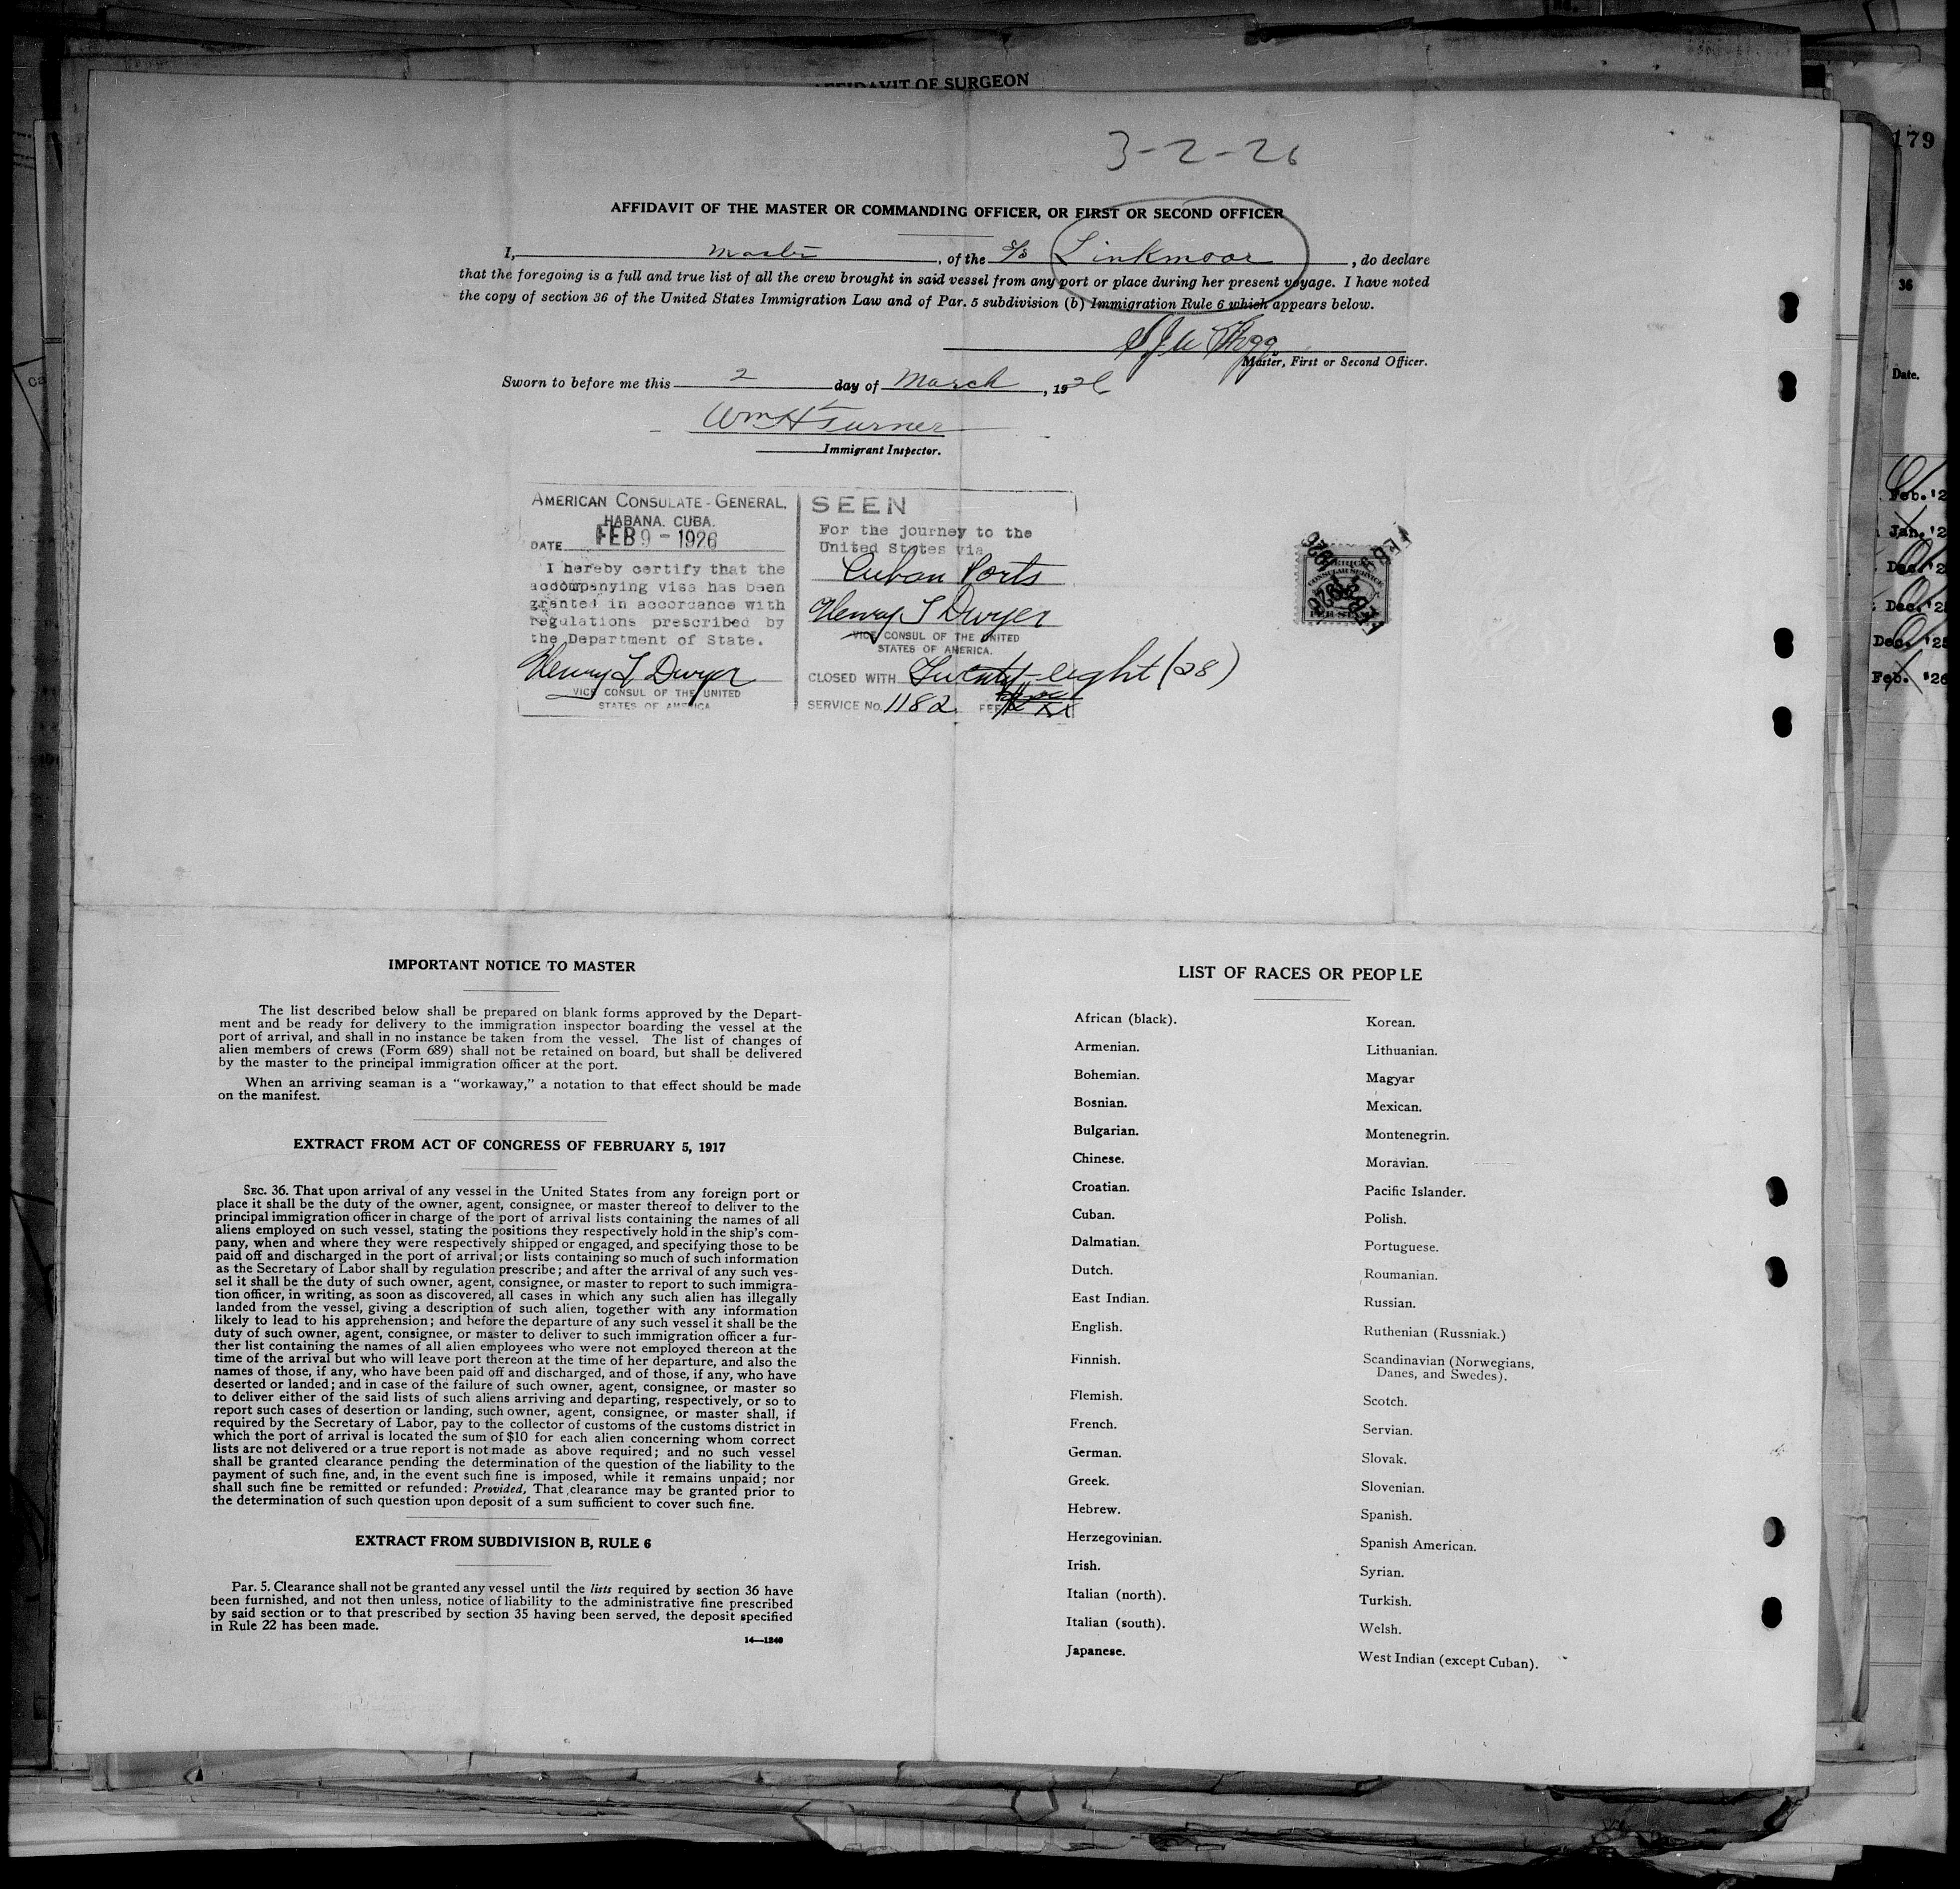 AFFIDAVIT OF SURGEON
3-2-26
179
AFFIDAVIT OF THE MASTER OR COMMANDING OFFICER, OR FIRST OR SECOND OFFICER
I, Master, of the S/S Linkmoor, do declare
that the foregoing is a full and true list of all the crew brought in said vessel from any port or place during her present voyage. I have noted
the copy of section 36 of the United States Immigration Law and of Par. 5 subdivision (b) Immigration Rule 6 which appears below.
Master, First or Second Officer.
Sworn to before me this 2 day of March, 1926
Wm H Turner
Immigrant Inspector.
AMERICAN CONSULATE-GENERAL,
HABANA. CUBA.
DATE FEB 9 - 1926
I hereby certify that the
accompanying visa has been
granted in accordance with
regulations prescribed by
the Department of State.
Henry T Dwyer
VICE CONSUL OF THE UNITED
STATES OF AMERICA
SEEN
For the journey to the
United States via
Cuban Ports
Henry T Dwyer
VICE CONSUL OF THE UNITED
STATES OF AMERICA.
CLOSED WITH Twenty-eight (28)
SERVICE No. 1182. FEE
36
Date.
Feb. '2
Jan. '2
Dec. '2
Dec. '2
Dec. '25
Feb. '26
IMPORTANT NOTICE TO MASTER
The list described below shall be prepared on blank forms approved by the Depart-
ment and be ready for delivery to the immigration inspector boarding the vessel at the
port of arrival, and shall in no instance be taken from the vessel. The list of changes of
alien members of crews (Form 689) shall not be retained on board, but shall be delivered
by the master to the principal immigration officer at the port.
When an arriving seaman is a "workaway," a notation to that effect should be made
on the manifest.
EXTRACT FROM ACT OF CONGRESS OF FEBRUARY 5, 1917
SEC. 36. That upon arrival of any vessel in the United States from any foreign port or
place it shall be the duty of the owner, agent, consignee, or master thereof to deliver to the
principal immigration officer in charge of the port of arrival lists containing the names of all
aliens employed on such vessel, stating the positions they respectively hold in the ship's com-
pany, when and where they were respectively shipped or engaged, and specifying those to be
paid off and discharged in the port of arrival; or lists containing so much of such information
as the Secretary of Labor shall by regulation prescribe; and after the arrival of any such ves-
sel it shall be the duty of such owner, agent, consignee, or master to report to such immigra-
tion officer, in writing, as soon as discovered, all cases in which any such alien has illegally
landed from the vessel, giving a description of such alien, together with any information
likely to lead to his apprehension; and before the departure of any such vessel it shall be the
duty of such owner, agent, consignee, or master to deliver to such immigration officer a fur-
ther list containing the names of all alien employees who were not employed thereon at the
time of the arrival but who will leave port thereon at the time of her departure, and also the
names of those, if any, who have been paid off and discharged, and of those, if any, who have
deserted or landed; and in case of the failure of such owner, agent, consignee, or master so
to deliver either of the said lists of such aliens arriving and departing, respectively, or so to
report such cases of desertion or landing, such owner, agent, consignee, or master shall, if
required by the Secretary of Labor, pay to the collector of customs of the customs district in
which the port of arrival is located the sum of $10 for each alien concerning whom correct
lists are not delivered or a true report is not made as above required; and no such vessel
shall be granted clearance pending the determination of the question of the liability to the
payment of such fine, and, in the event such fine is imposed, while it remains unpaid; nor
shall such fine be remitted or refunded: Provided, That clearance may be granted prior to
the determination of such question upon deposit of a sum sufficient to cover such fine.
EXTRACT FROM SUBDIVISION B, RULE 6
Par. 5. Clearance shall not be granted any vessel until the lists required by section 36 have
been furnished, and not then unless, notice of liability to the administrative fine prescribed
by said section or to that prescribed by section 35 having been served, the deposit specified
in Rule 22 has been made.
14—1240
LIST OF RACES OR PEOPLE
African (black).
Armenian.
Bohemian.
Bosnian.
Bulgarian.
Chinese.
Croatian.
Cuban.
Dalmatian.
Dutch.
East Indian.
English.
Finnish.
Flemish.
French.
German.
Greek.
Hebrew.
Herzegovinian.
Irish.
Italian (north).
Italian (south).
Japanese.
Korean.
Lithuanian.
Magyar
Mexican.
Montenegrin.
Moravian.
Pacific Islander.
Polish.
Portuguese.
Roumanian.
Russian.
Ruthenian (Russniak.)
Scandinavian (Norwegians,
Danes, and Swedes).
Scotch.
Servian.
Slovak.
Slovenian.
Spanish.
Spanish American.
Syrian.
Turkish.
Welsh.
West Indian (except Cuban).